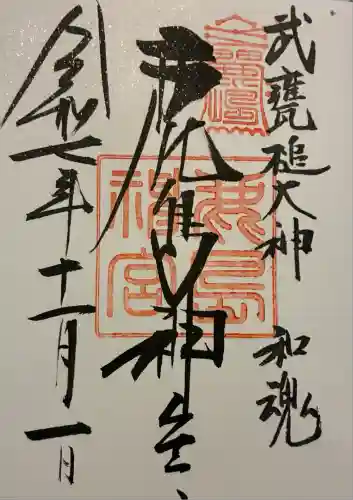 武甕槌大神 和魂
鹿島神宮
鹿島
神宮
令和七年十一月一日